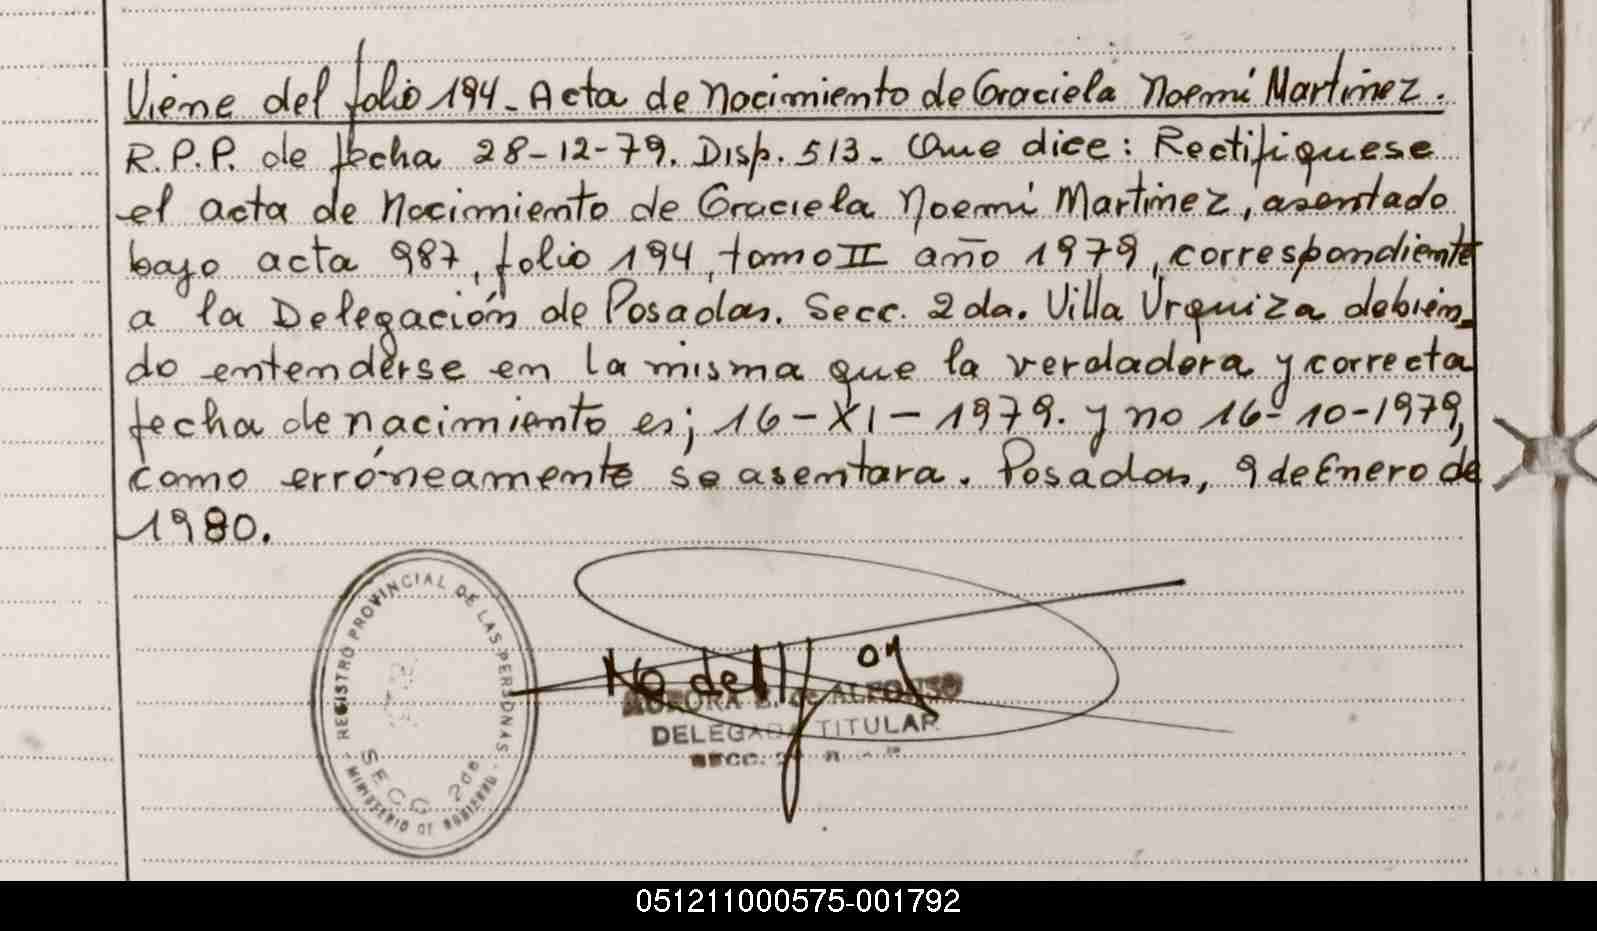 Viene del folio 194 - Acta de Nacimiento de Graciela Noemí Martinez.
R.P.P. de fecha 28-12-79. Disp. 513 - Que dice: Rectifíquese
el acta de Nacimiento de Graciela Noemí Martinez, asentado
bajo acta 987, folio 194, tomo II año 1979, correspondiente
a la Delegación de Posadas. Secc. 2da. Villa Urquiza debién-
do entenderse en la misma que la verdadera y correcta
fecha de nacimiento es; 16-XI-1979. y no 16-10-1979,
como erróneamente se asentara. Posadas, 9 de Enero de
1980.
REGISTRO PROVINCIAL DE LAS PERSONAS
SECC 2da
MINISTERIO DE GOBIERNO
AURORA de ALFONSO
DELEGADA TITULAR
SECC.
051211000575-001792